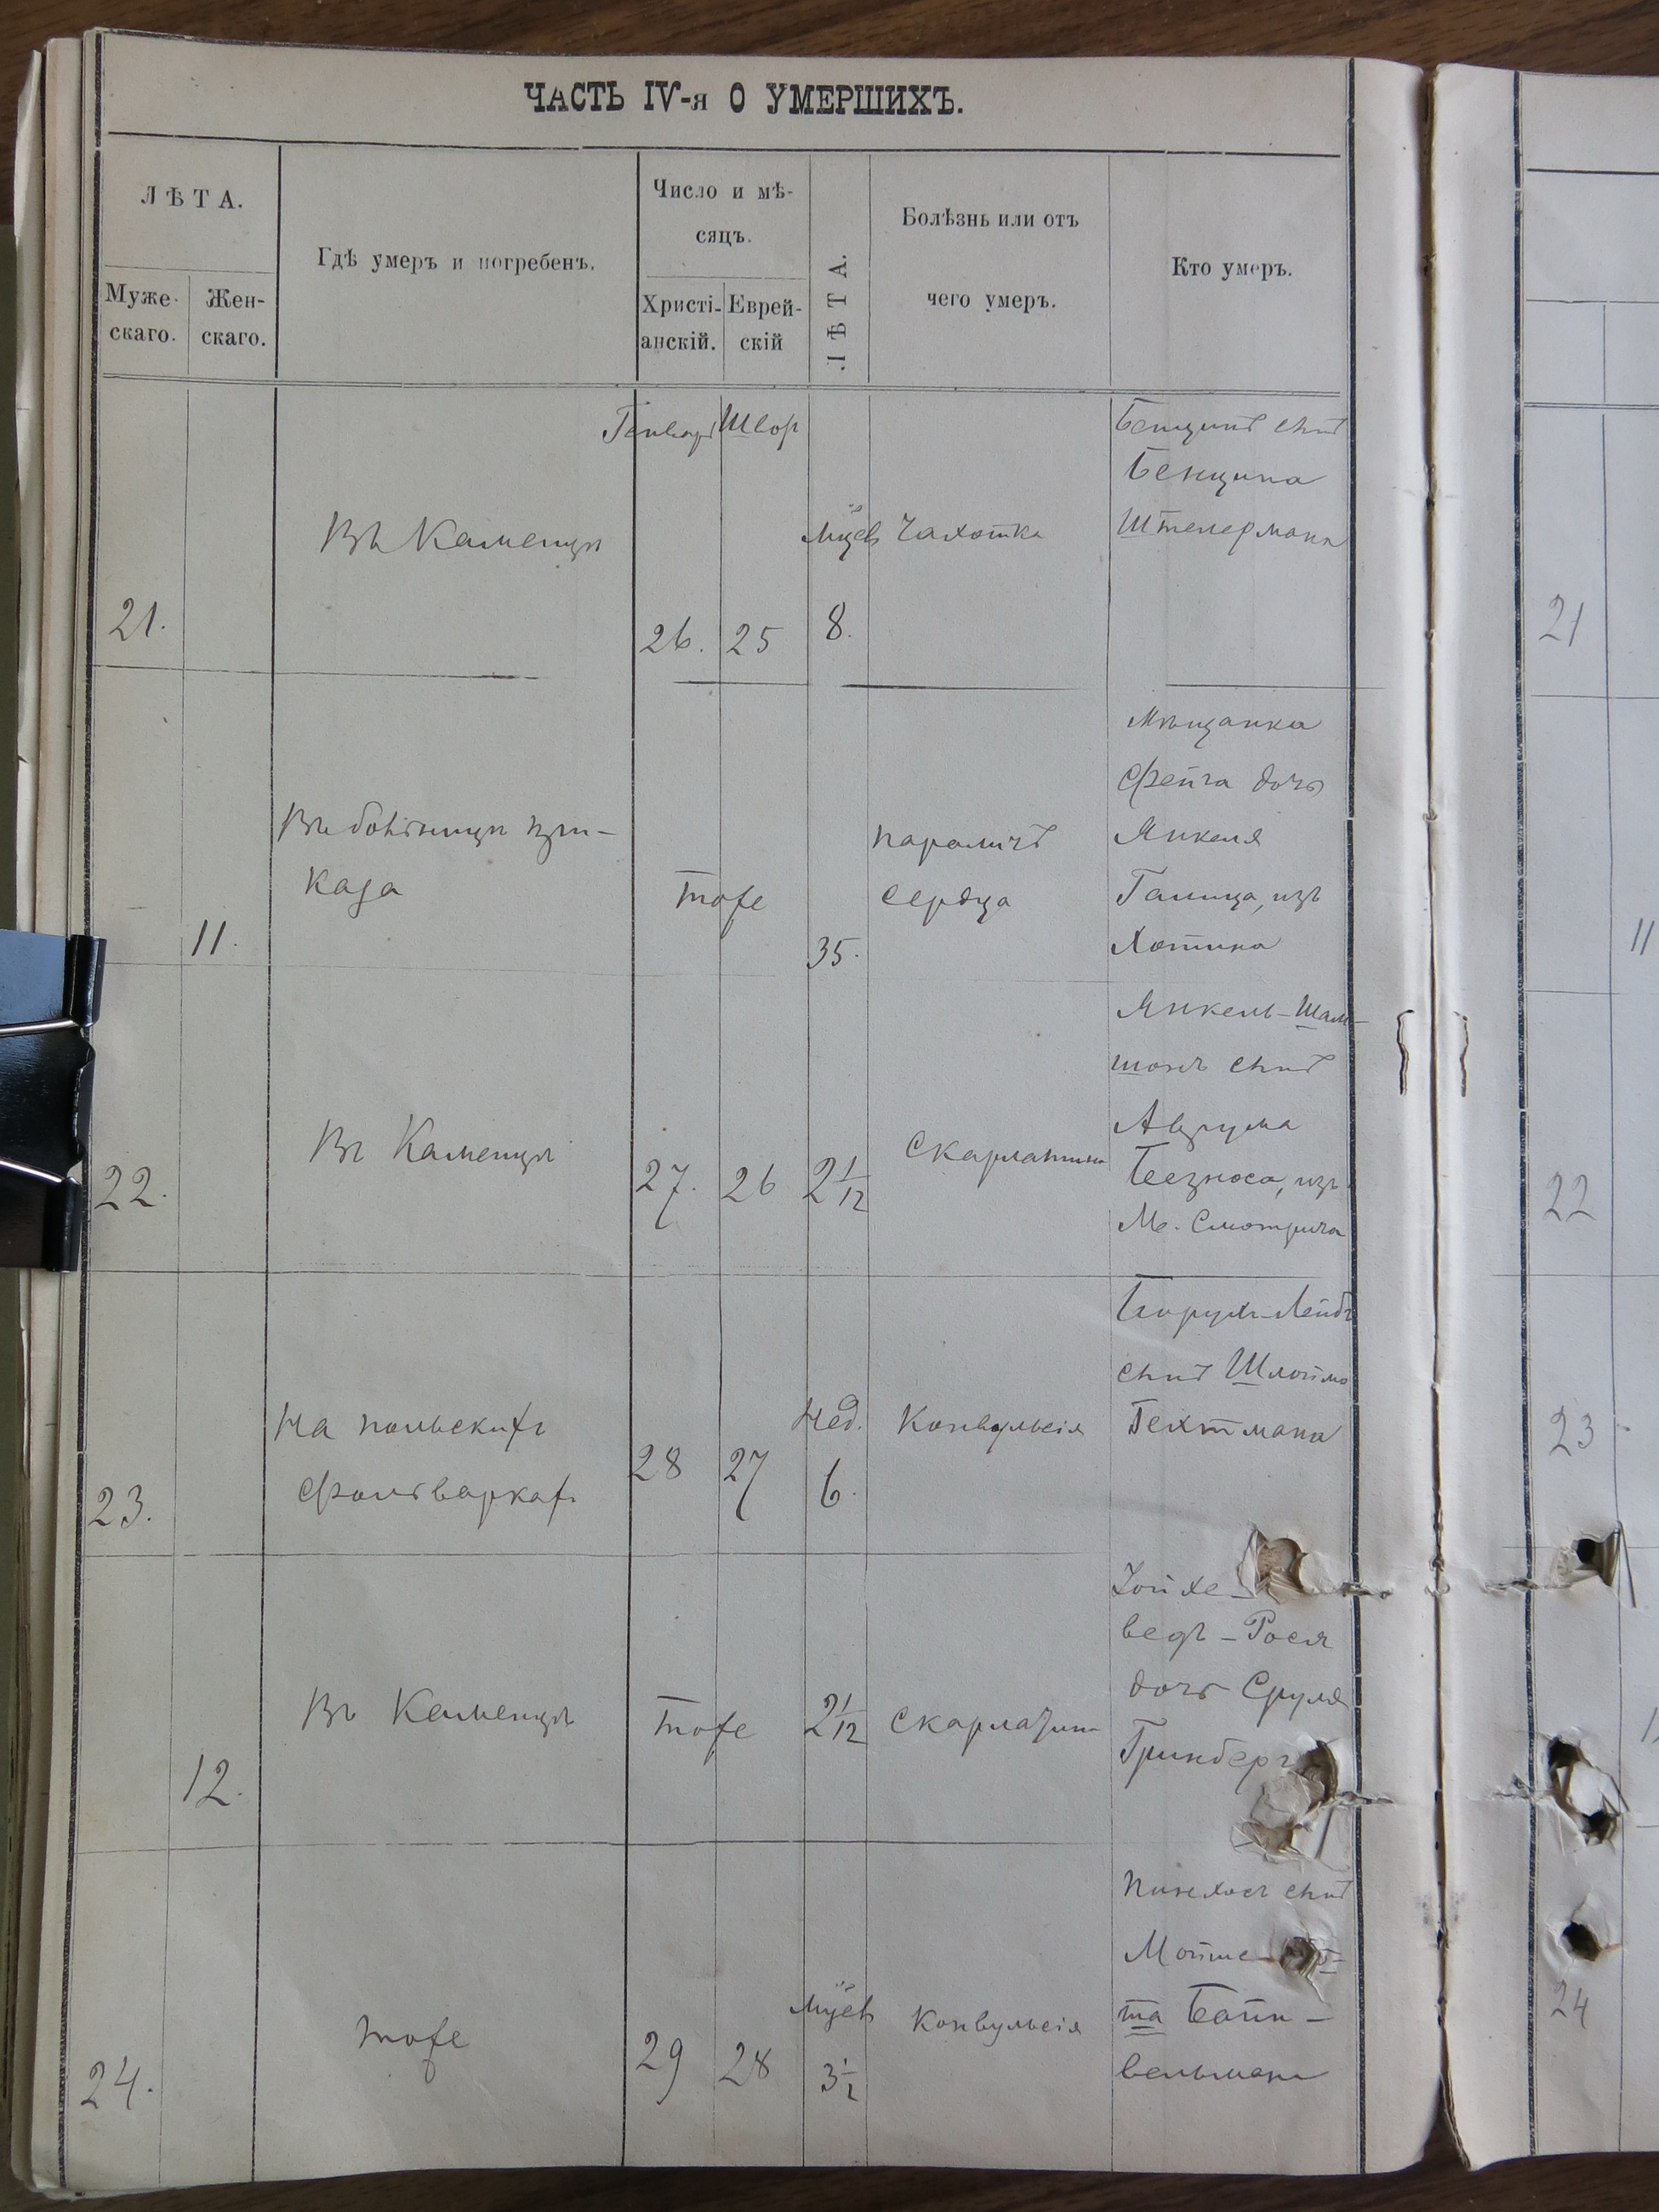 ЧАСТЬ IV-я О УМЕРШИХЪ.
ЛѢТА.
Муже-
скаго.
Жен-
скаго.
Гдѣ умеръ и погребенъ.
Число и мѣ-
сяцъ.
Христі-
анскій.
Еврей-
скій
ЛѢТА.
Болѣзнь или отъ
чего умеръ.
Кто умеръ.
21.
Въ Каменцѣ
Генварь
26.
25
8.
Чахотка
Бенционъ сынъ
Бенциона
Штелермана
21
11.
Въ больницѣ при-
каза
тоже
35.
параличъ
сердца
Мѣщанка
Фейга дочь
Янкеля
Галица, изъ
Хотина
11
22.
Въ Каменцѣ
27.
26
2 1/12
Скарлатина
Янкель-Шам-
шонъ сынъ
Аврума
Безноса, изъ
М. Смотрича
22
23.
На польскихъ
фольваркахъ
28
27
Нед.
6.
Конвульсія
Борухъ-Лейбъ
сынъ Шлоймо
Гехтмана
23
12.
Въ Каменцѣ
тоже
2 1/12
Скарлатин
Хойхе-
ведъ-Рося
дочь Сруля
Гринберг
24.
тоже
29
28
3 1/2
Конвульсія
Пинхосъ сынъ
Мойше
та Бейн-
вельмана
24